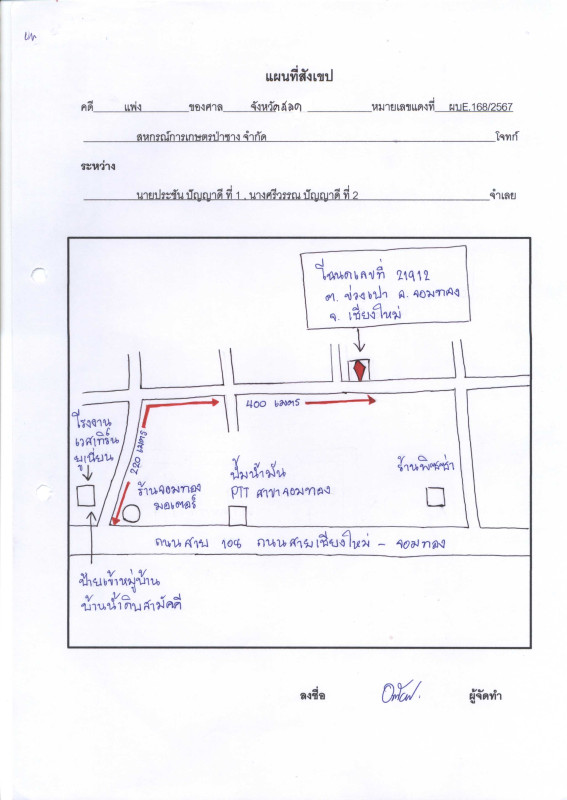 แผนที่สังเขป
คดี แพ่ง ของศาล จังหวัดฮอด หมายเลขแดงที่ ผบE.168/2567
สหกรณ์การเกษตรป่าซาง จำกัด โจทก์
ระหว่าง
นายประชัน ปัญญาดี ที่ 1 , นางศรีวรรณ ปัญญาดี ที่ 2 จำเลย
โฉนดเลขที่ 21912
ต. ข่วงเปา อ. จอมทอง
จ. เชียงใหม่
400 เมตร
220 เมตร
โรงงาน
เวสเทิร์น
ยูเนี่ยน
ร้านจอมทอง
มอเตอร์
ปั๊มน้ำมัน
PTT สาขาจอมทอง
ร้านพิซซ่า
ถนนสาย 108 ถนนสายเชียงใหม่ - จอมทอง
ป้ายเข้าหมู่บ้าน
บ้านน้ำดิบสามัคคี
ลงชื่อ ผู้จัดทำ